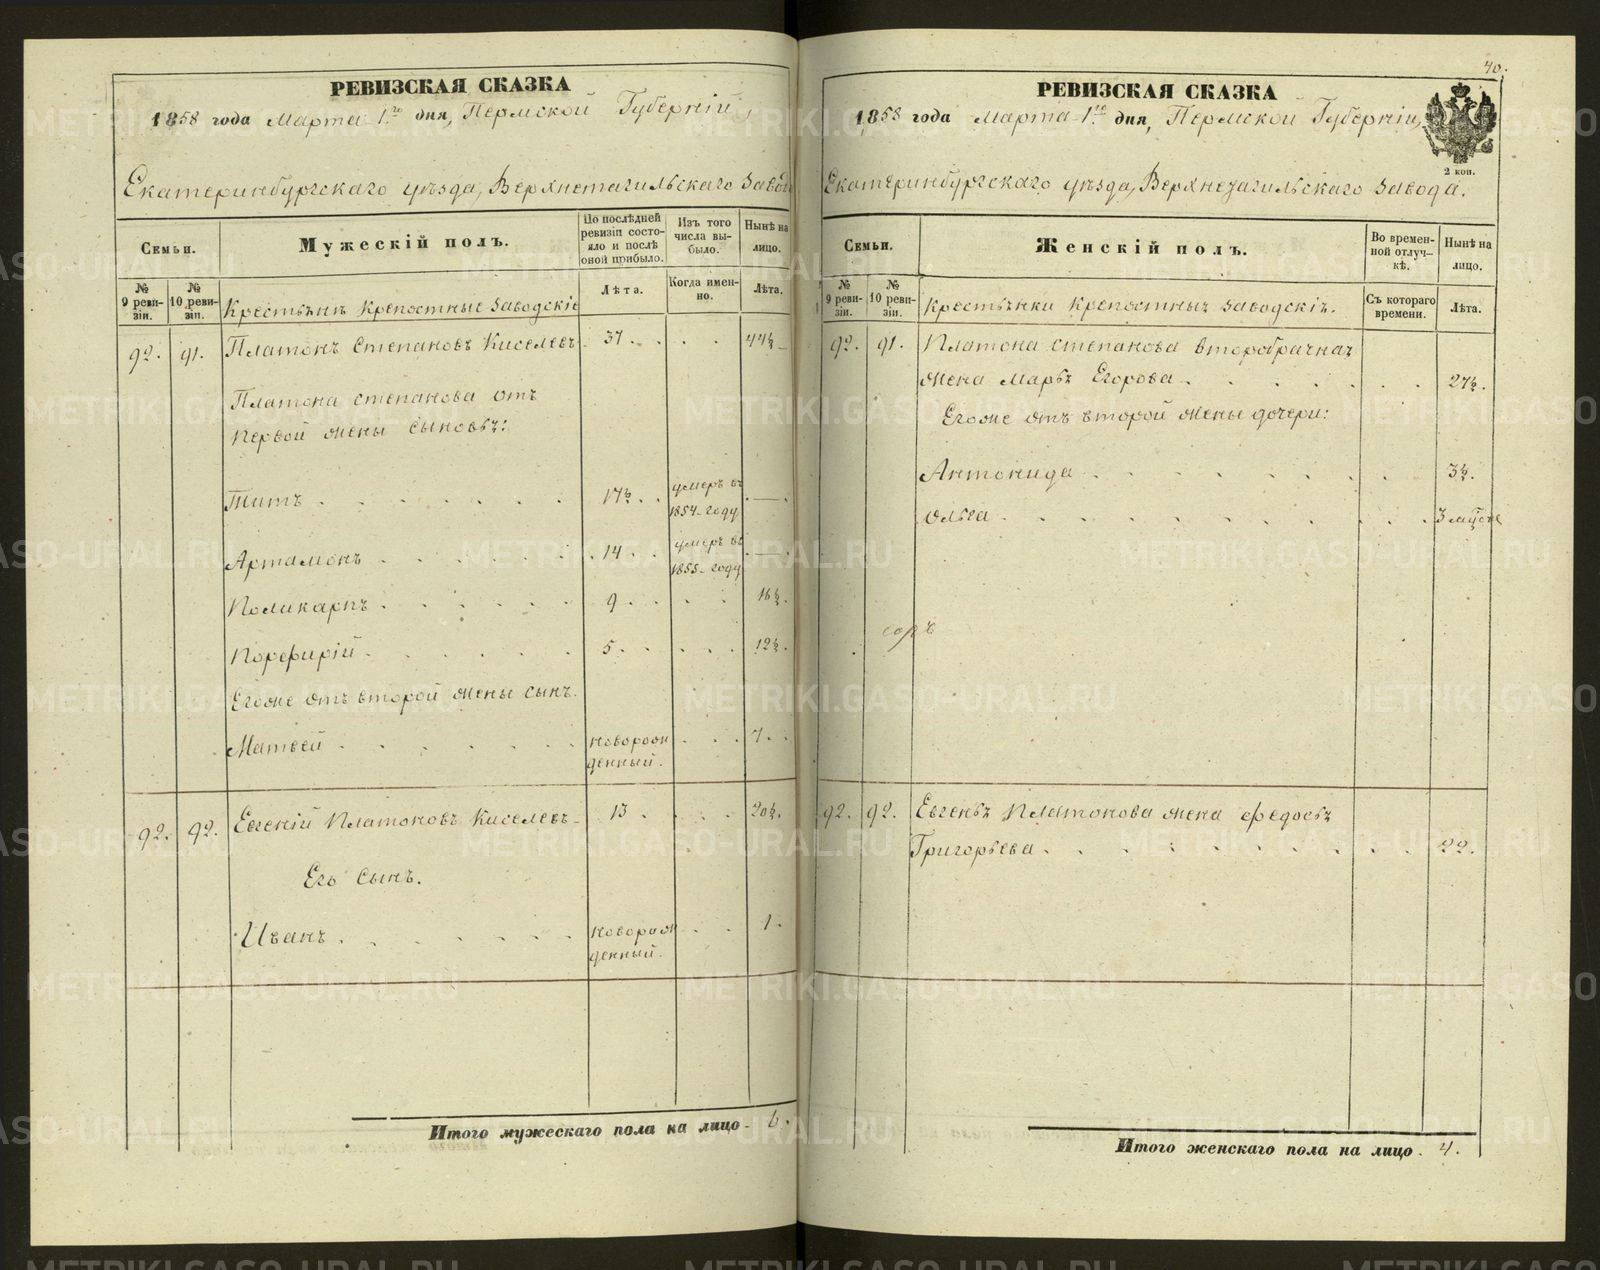 РЕВИЗСКАЯ СКАЗКА
1858 года Марта 1го дня, Пермской Губерніи,
Екатеринбургскаго уѣзда, Верхнетагильскаго Завода
Семьи.
Мужескій полъ.
По послѣдней ревизіи состояло и послѣ оной прибыло.
Изъ того числа выбыло.
Нынѣ на лицо.
№ 9 ревизіи.
№ 10 ревизіи.
Крестьянѣ Крепостные Заводскіе
Лѣта.
Когда именно.
Лѣта.
92. 91. Платонъ Степановъ Киселевъ 37 44½
Платона Степанова отъ
первой жены сыновья:
Титъ 17½ умеръ въ 1854 году
Артамонъ 14 умеръ въ 1855 году
Поликарпъ 9 16½
Порфирій 5 12½
Егоже отъ второй жены сынъ
Матвей новорожденный. 7
92. 92. Евгеній Платоновъ Киселевъ 13 20½
Его сынъ.
Иванъ новорожденный. 1
Итого мужескаго пола на лицо 6.
40.
РЕВИЗСКАЯ СКАЗКА
1858 года Марта 1го дня, Пермской Губерніи,
2 коп.
Екатеринбургскаго уѣзда, Верхнетагильскаго Завода.
Семьи.
Женскій полъ.
Во временной отлучкѣ.
Нынѣ на лицо.
№ 9 ревизіи.
№ 10 ревизіи.
Крестьянки Крепостныя Заводскія.
Съ котораго времени.
Лѣта.
92. 91. Платона Степанова второбрачная
жена Марья Егорова 27½.
Егоже отъ второй жены дочери:
Антонида 3½.
Ольга 3 мѣсяца
92. 92. Евгенья Платонова жена Федосья
Григорьева 22.
Итого женскаго пола на лицо 4.
METRIKI.GASO-URAL.RU